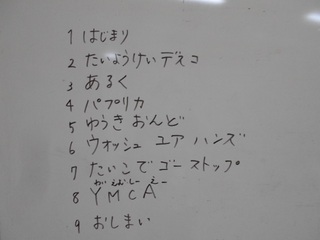 1 はじまり
2 たいようけいデスコ
3 あるく
4 パプリカ
5 ゆうきおんど
6 ウォッシュ ユア ハンズ
7 たいこでゴーストップ
8 YMCA
9 おしまい